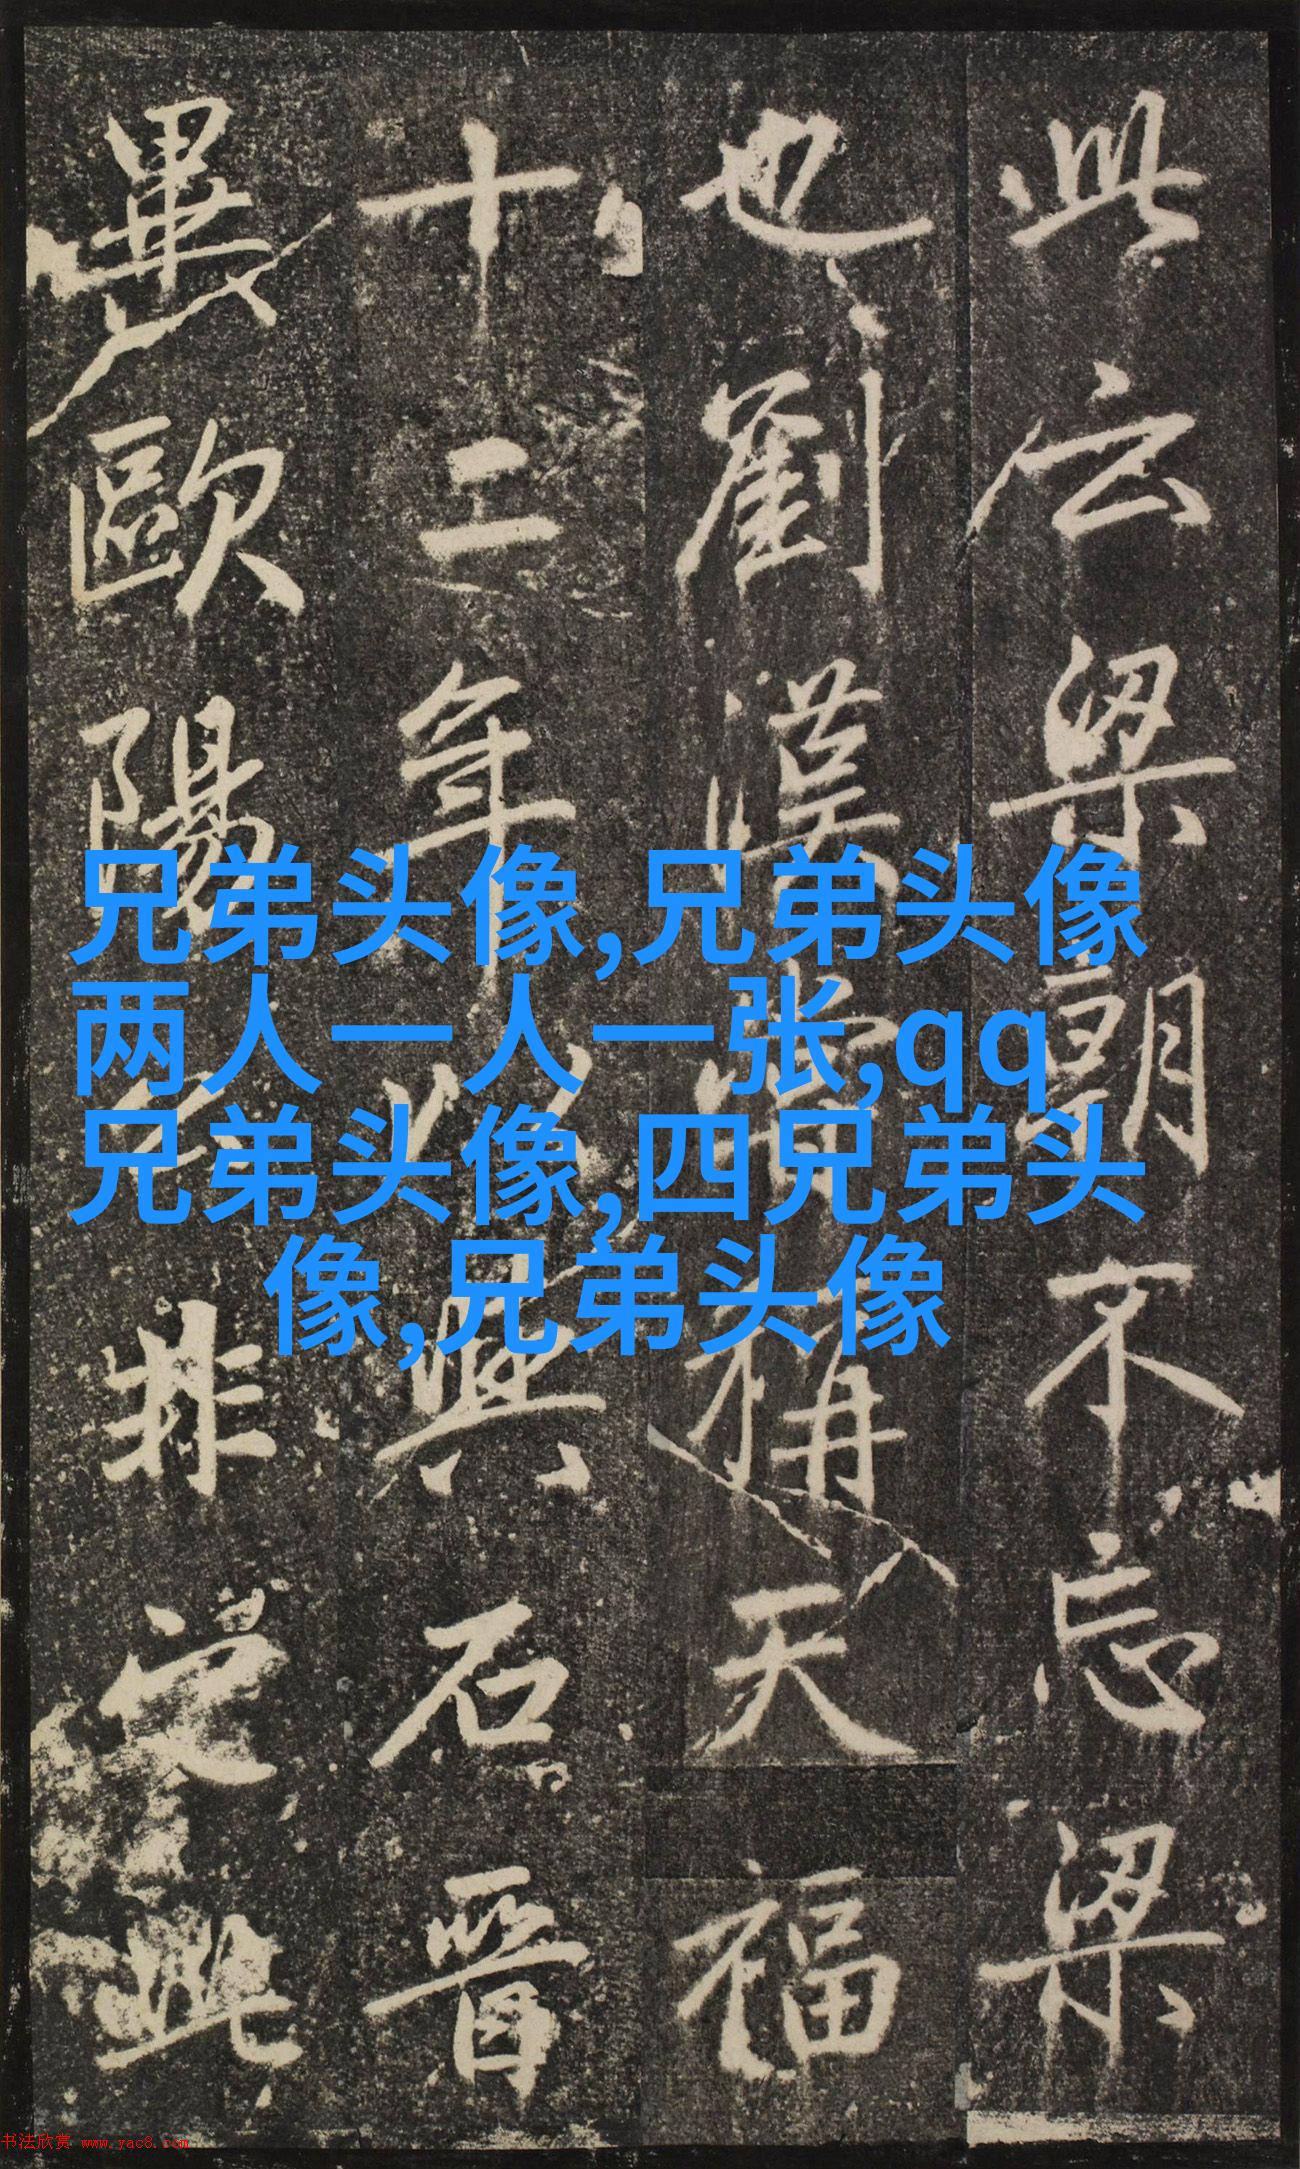 此云梁朝不忘梁
也劉漢嘗稱天福
十二年與石晉
畢歐陽公非此
兄弟头像,兄弟头像
两人一人一张,qq
兄弟头像,四兄弟头
像,兄弟头像
书法欣赏 www.yac8.com